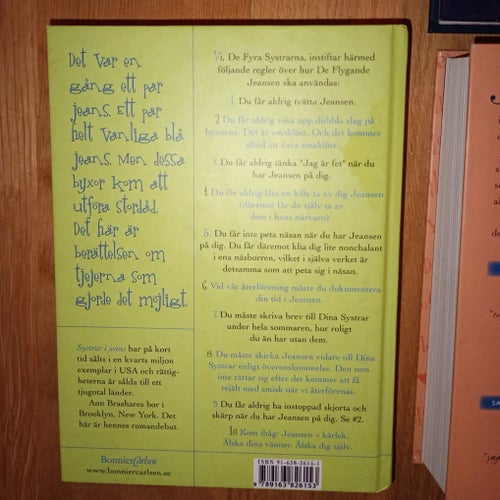 Det var en
gång ett par
jeans. Ett par
helt vanliga blå
jeans. Men dessa
byxor kom att
utföra stordåd.
Det här är
berättelsen om
tjejerna som
gjorde det möjligt.
Systrar i jeans har på kort
tid sålts i en kvarts miljon
exemplar i USA och rättig-
heterna är sålda till ett
tjugotal länder.
Ann Brashares bor i
Brooklyn, New York. Det
här är hennes romandebut.
BonnierCarlsen
www.bonniercarlsen.se
Vi, De Fyra Systrarna, instiftar härmed
följande regler över hur De Flygande
Jeansen ska användas:
1. Du får aldrig tvätta Jeansen.
2. Du får aldrig vika upp dubbla slag på
byxorna. Det är smaklöst. Och det kommer
alltid att vara smaklöst.
3. Du får aldrig tänka "Jag är fet" när du
har Jeansen på dig.
4. Du får aldrig låta en kille ta av dig Jeansen
(däremot får du själv ta av
dem i hans närvaro).
5. Du får inte peta näsan när du har Jeansen
på dig. Du får däremot klia dig lite nonchalant
i ena näsborren, vilket i själva verket är
detsamma som att peta sig i näsan.
6. Vid vår återförening måste du dokumentera
din tid i Jeansen.
7. Du måste skriva brev till Dina Systrar
under hela sommaren, hur roligt
du än har utan dem.
8. Du måste skicka Jeansen vidare till Dina
Systrar enligt överenskommelse. Den som
inte rättar sig efter det kommer att få
rejält med smisk när vi återförenas.
9. Du får aldrig ha instoppad skjorta och
skärp när du har Jeansen på dig. Se #2.
10. Kom ihåg: Jeansen = kärlek.
Älska dina vänner. Älska dig själv.
ISBN 91-638-2615-1
9 789163 826153